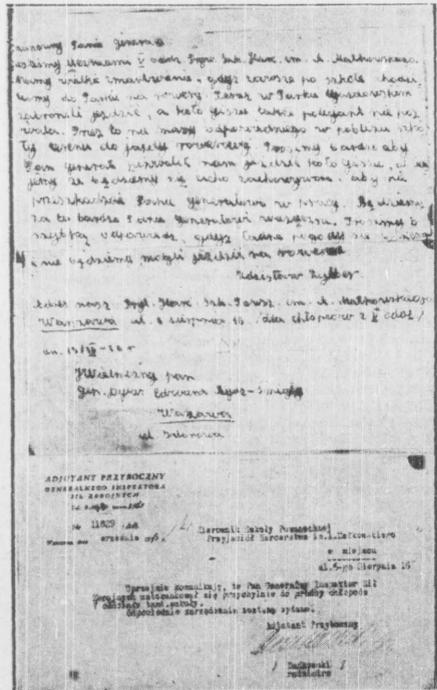 Szanowny Panie Generale
Jesteśmy uczniami V oddz. Pryw. Szk. Harc. im. A. Małkowskiego.
Mamy wielkie zmartwienie, gdyż zawsze po szkole chodzi
liśmy do Parku na rowery. Teraz w Parku Ujazdowskim
zabronili jeździć, a koło Gisz'u także policjant nie poz
wala. Przez to nie mamy odpowiedniego w pobliżu szko
ły terenu do jazdy rowerowej. Prosimy bardzo aby
Pan Generał pozwolił nam jeździć koło Gisz'u, a
że będziemy się cicho zachowywać, aby nie
przeszkadzać Panu Generałowi w pracy. Będziemy
za to bardzo Panu Generałowi wdzięczni. Prosimy o
szybką odpowiedź, gdyż ładna pogoda się
i nie będziemy mogli jeździć na rowerze
Zdzisław
Adres nasz Szk. im. A. Małkowskiego
Warszawa ul. 6 sierpnia 16 /dla chłopców z V oddz./
dn.
JWielmożny pan
Gen. Dyw. Edward Rydz-Śmigły
Warszawa
ul.
ADJUTANT PRZYBOCZNY
GENERALNEGO INSPEKTORA
SIŁ ZBROJNYCH
Nr 11829
września
Kierownik Szkoły Powszechnej
Przyjaciół Harcerstwa im. A. Małkowskiego
w miejscu
ul. 6-go Sierpnia 16
Uprzejmie komunikuję, że Pan Generalny Inspektor Sił
Zbrojnych ustosunkował się przychylnie do prośby chłopców
V oddziału tamt. szkoły.
Odpowiednie zarządzenie zostało wydane.
Adjutant Przyboczny
rotmistrz